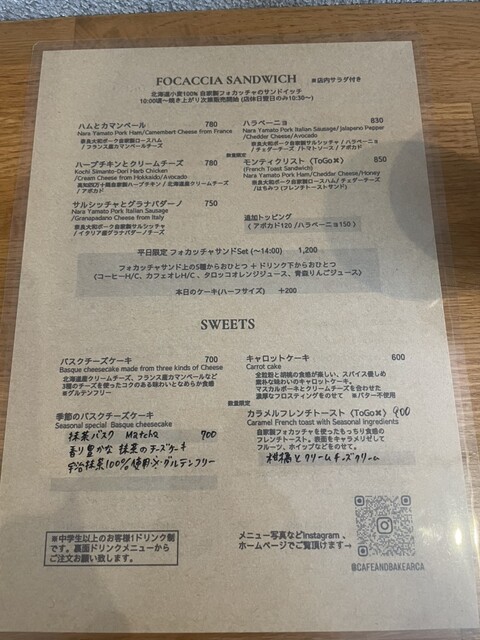 FOCACCIA SANDWICH ※店内サラダ付き
北海道小麦100% 自家製フォカッチャのサンドイッチ
10:00頃〜焼き上がり次第販売開始 (店休日翌日のみ10:30〜)
ハムとカマンベール 780
Nara Yamato Pork Ham/Camembert Cheese from France
奈良大和ポーク自家製ロースハム
/フランス産カマンベールチーズ
ハーブチキンとクリームチーズ 780
Kochi Simanto-Dori Herb Chicken
/Cream Cheese from Hokkaido/Avocado
高知四万十鶏自家製ハーブチキン / 北海道産クリームチーズ
/アボカド
サルシッチャとグラナパダーノ 750
Nara Yamato Pork Italian Sausage
/Granapadano Cheese from Italy
奈良大和ポーク自家製サルシッチャ
/イタリア産グラナパダーノチーズ
ハラペーニョ 830
Nara Yamato Pork Italian Sausage/ Jalapeno Pepper
/Chedder Cheese/Avocado
奈良大和ポーク自家製サルシッチャ / ハラペーニョ
/ チェダーチーズ /トマトソース / アボカド
数量限定
モンティクリスト (ToGo※) 850
(French Toast Sandwich)
Nara Yamato Pork Ham/Cheddar Cheese/Honey
奈良大和ポーク自家製ロースハム/ チェダーチーズ
/はちみつ (フレンチトーストサンド)
追加トッピング
( アボカド120 /ハラペーニョ150 )
平日限定 フォカッチャサンドSet (〜14:00) 1,200
フォカッチャサンド上の5種からおひとつ + ドリンク下からおひとつ
(コーヒーH/C、カフェオレH/C 、タロッコオレンジジュース、青森りんごジュース)
本日のケーキ(ハーフサイズ) +200
SWEETS
バスクチーズケーキ 700
Basque cheesecake made from three kinds of Cheese
北海道産クリームチーズ、フランス産カマンベールなど
3種のチーズを使ったコクのある味わいとなめらか食感
※グルテンフリー
季節のバスクチーズケーキ
Seasonal special Basque cheesecake
抹茶バスク Matcha 700
香り豊かな 抹茶のチーズケーキ
宇治抹茶100%使用 ※グルテンフリー
キャロットケーキ 600
Carrot cake
全粒粉と胡桃の食感が楽しい、スパイス優しめ
素朴な味わいのキャロットケーキ。
マスカルポーネとクリームチーズを合わせた
濃厚なフロスティングをのせて ※バター不使用
数量限定
カラメルフレンチトースト (ToGo※) 900
Caramel French toast with Seasonal Ingredients
自家製フォカッチャを使ったもっちり食感の
フレンチトースト。表面をキャラメリゼして
フルーツ、ホイップなどをのせて。
柑橘とクリームチーズクリーム
※中学生以上のお客様1ドリンク制
です。裏面ドリンクメニューから
ご注文お願い致します。
メニュー写真などInstagram 、
ホームページでご覧頂けます→
@CAFEANDBAKEARCA